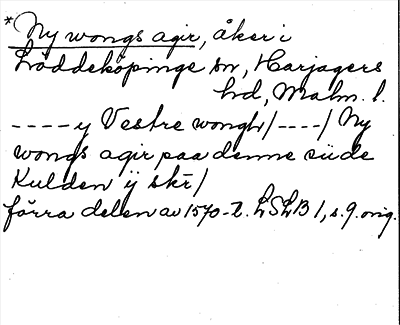 * Ny wongs agir, åker i
Löddeköpinge sn, Harjagers
hd, Malm. l.
----y Vestre wongh/----/ Ny
wongs agir paa denne siide
Kulden ÿ skr̄/
förra delen av 1570-t. LSLB 1, s. 9. orig.